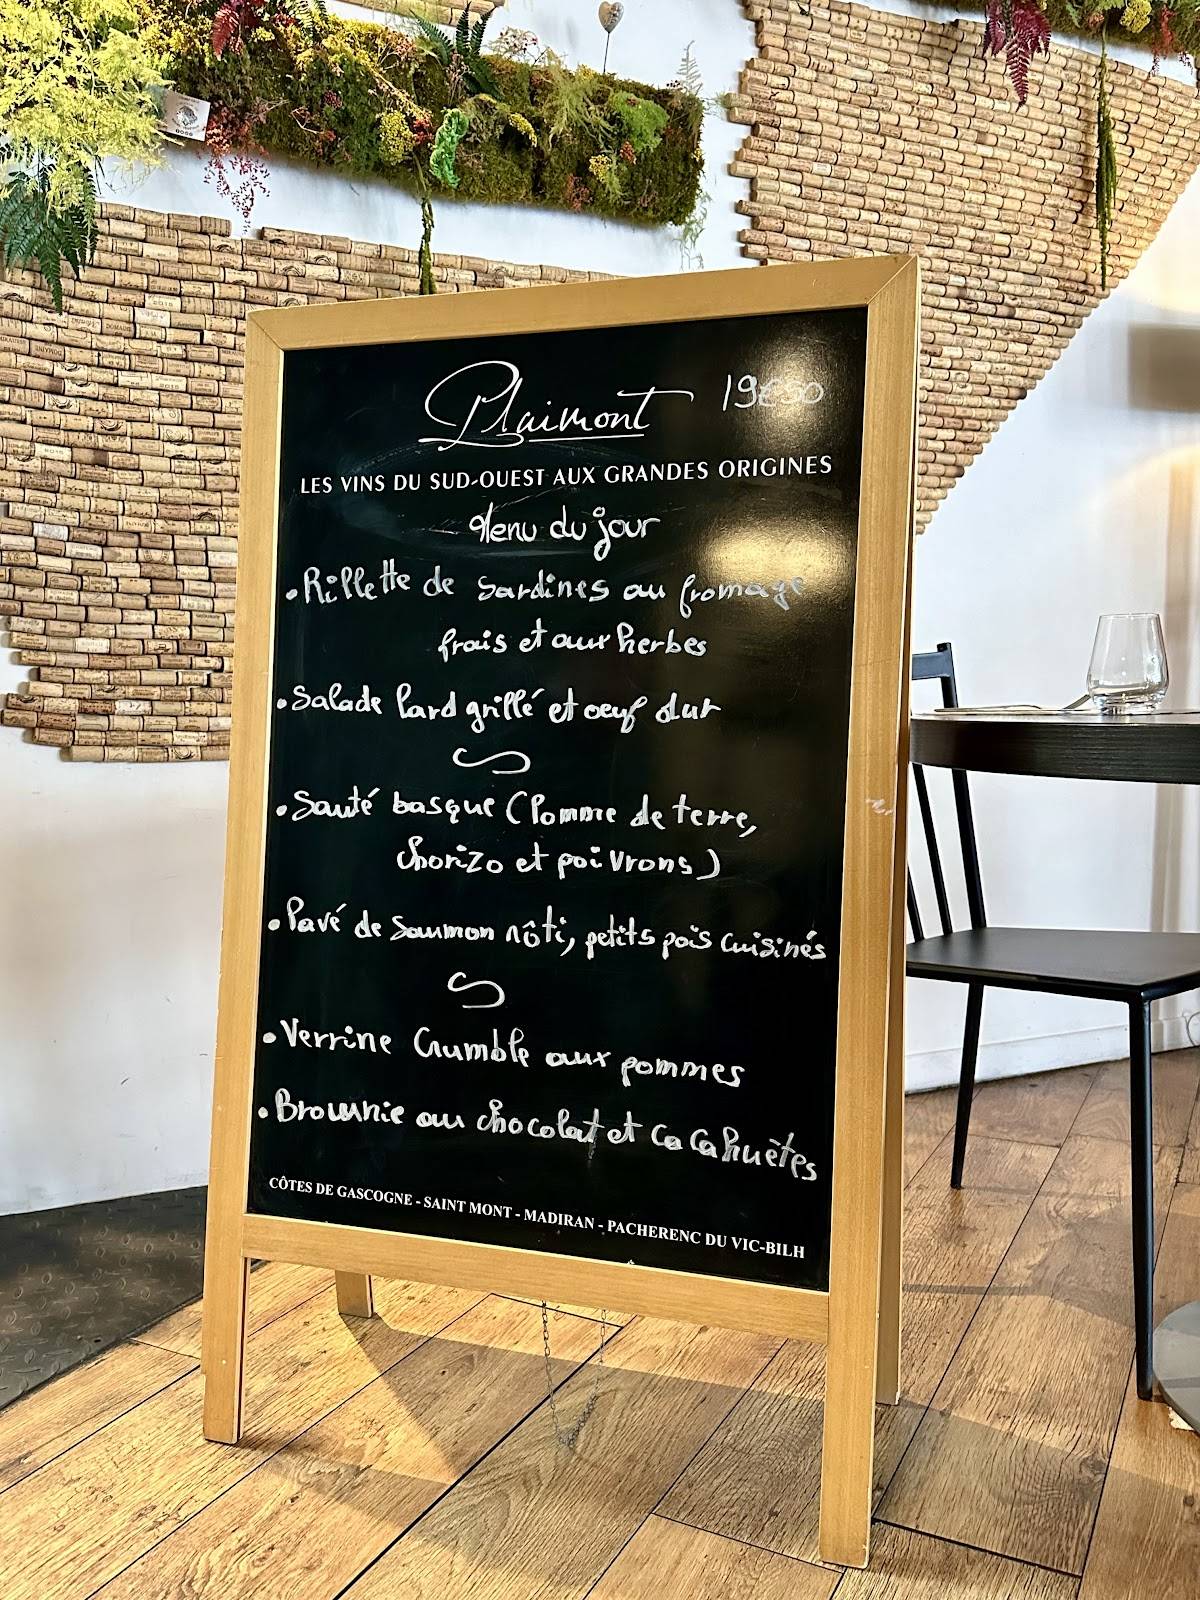 Plaimont 19€50
LES VINS DU SUD-OUEST AUX GRANDES ORIGINES
Menu du jour
• Rillette de sardines au fromage
frais et aux herbes
• Salade lard grillé et oeuf dur
• Sauté basque (Pomme de terre,
chorizo et poivrons)
• Pavé de saumon rôti, petits pois cuisinés
• Verrine Crumble aux pommes
• Brownie au chocolat et cacahuètes
CÔTES DE GASCOGNE - SAINT MONT - MADIRAN - PACHERENC DU VIC-BILH